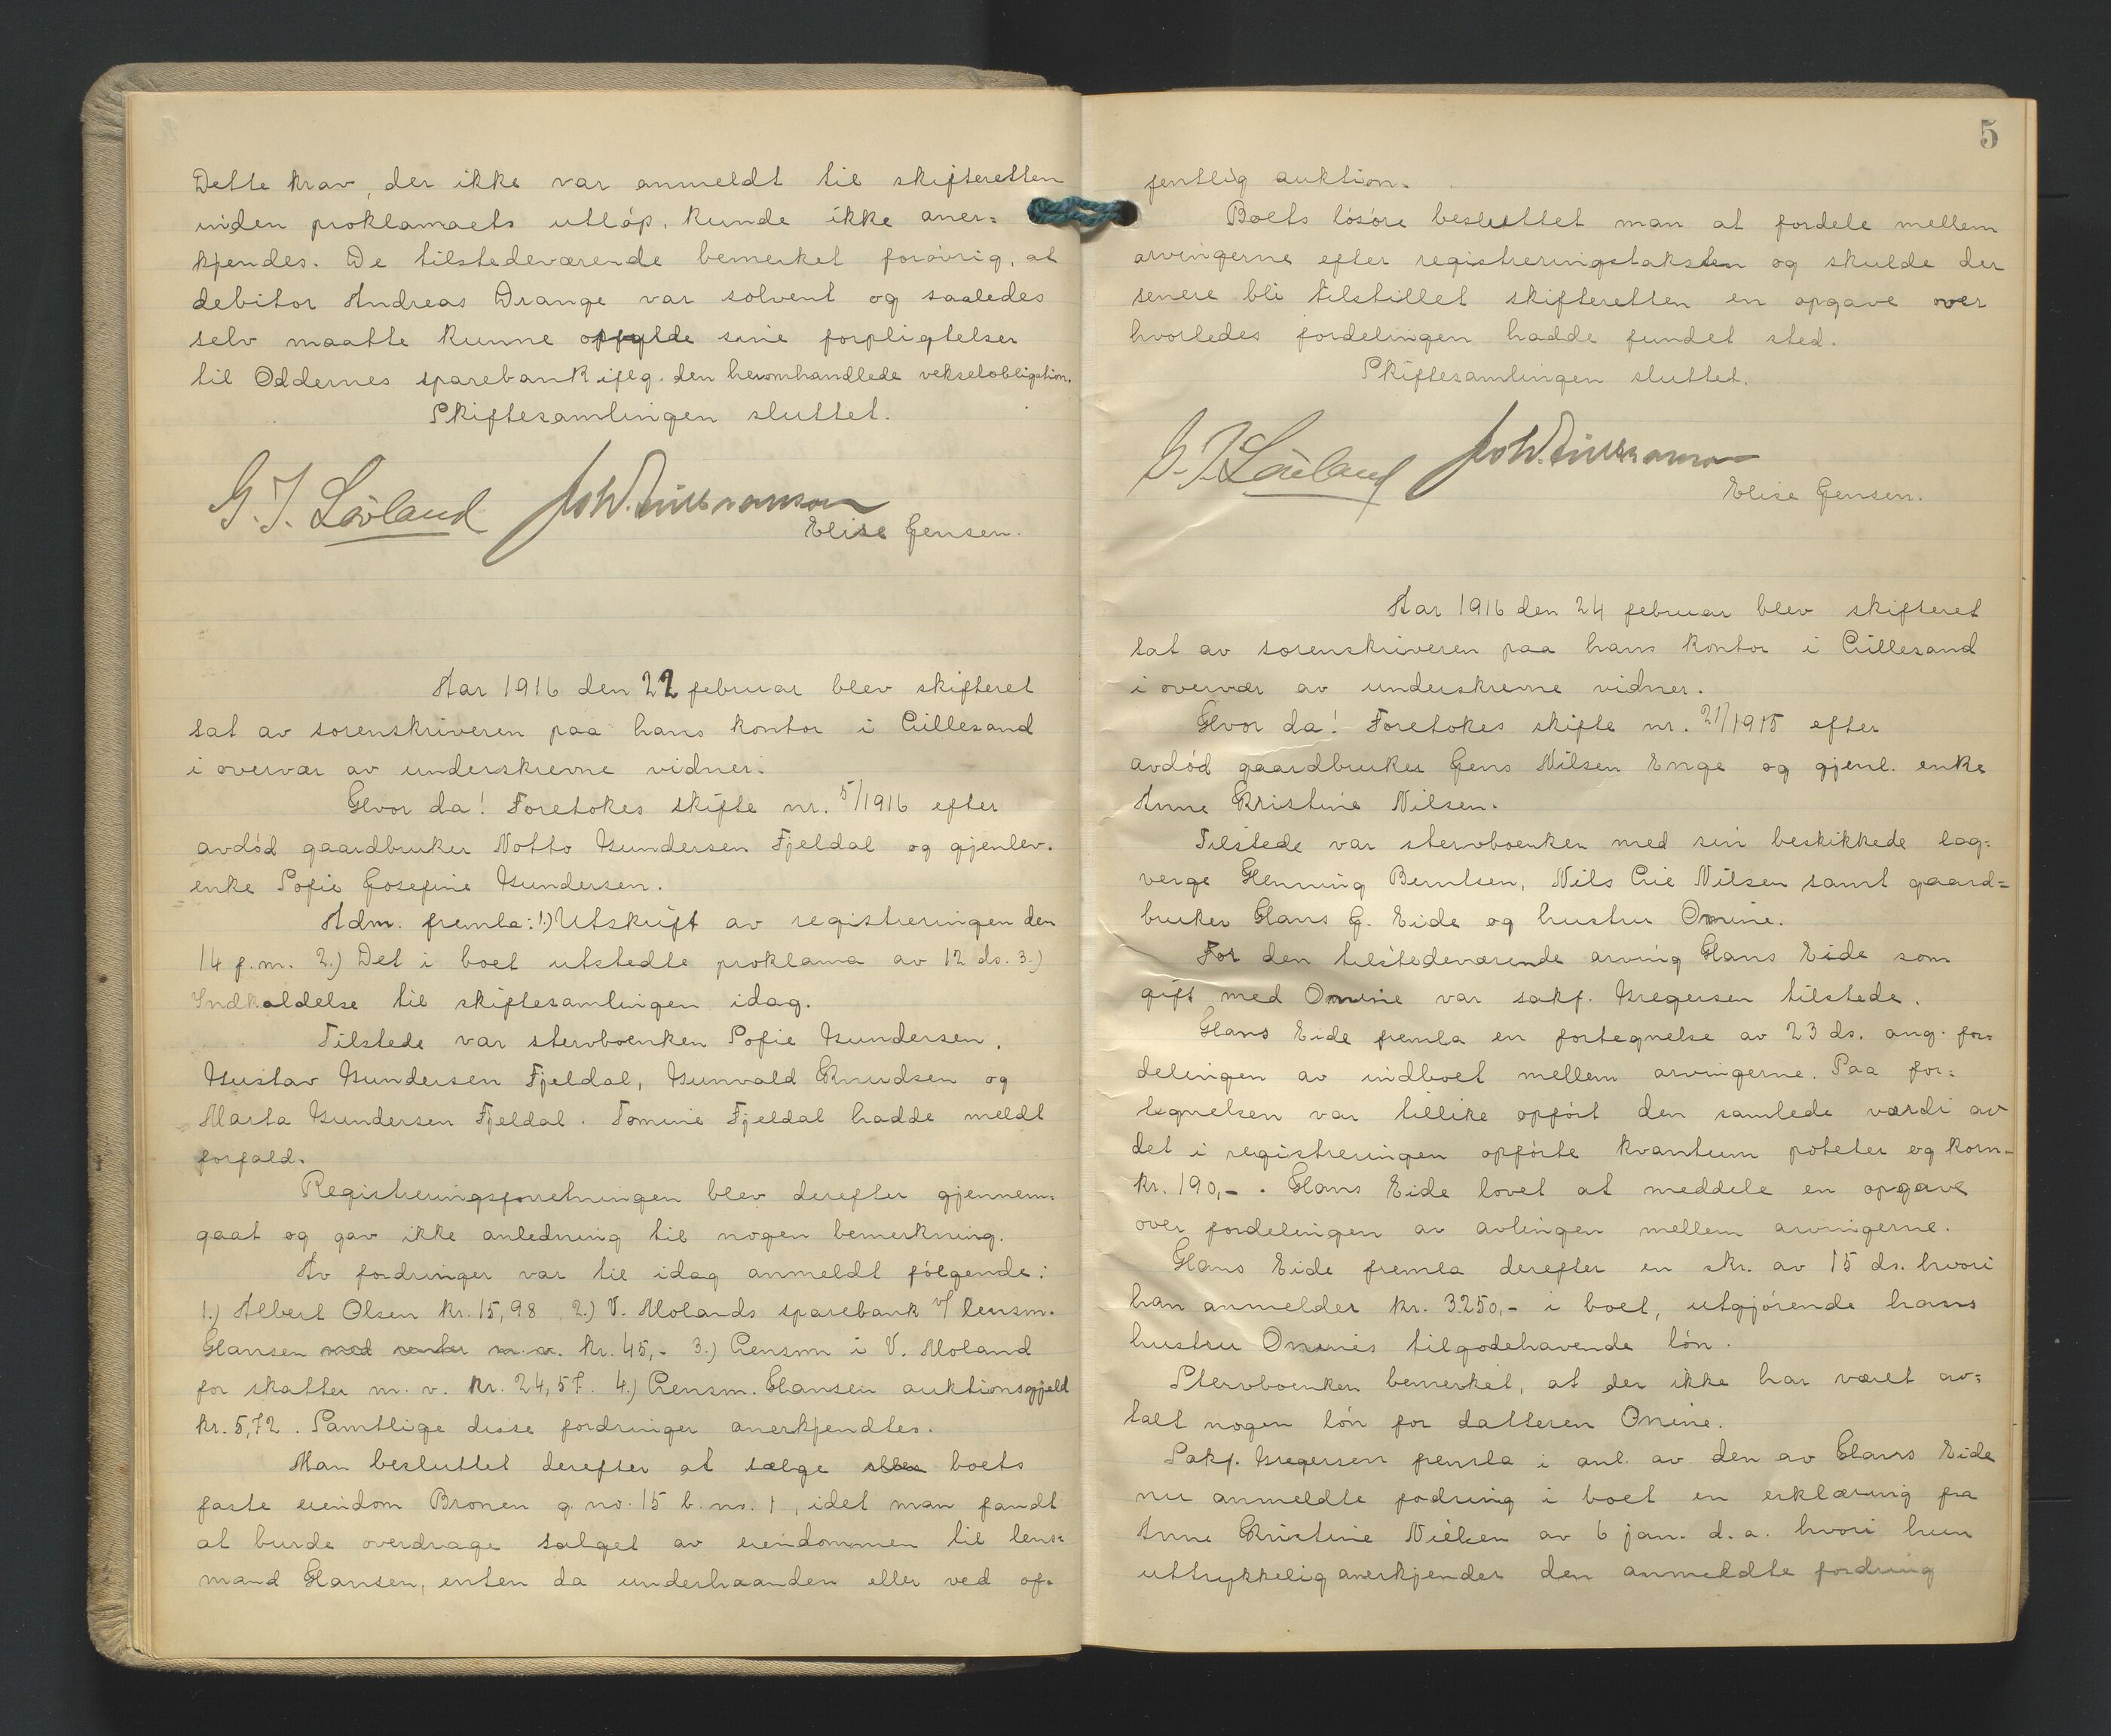 Dette krav, der ikke var anmeldt til skifteretten
inden proklamaets utløp, kunde ikke aner=
kjendes. De tilstedeværende bemerket forøvrig, at
debitor Andreas Drange var solvent og saaledes
selv maatte kunne opfylde sine forpligtelser
til Oddernes sparebank iflg. den heromhandlede vekselobligation.
Skiftesamlingen sluttet.
G. T. Løvland
Elise Jensen.
Aar 1916 den 22 februar blev skifteret
sat av sorenskriveren paa hans kontor i Lillesand
i overvær av underskrevne vidner:
Hvor da! Foretokes skifte nr. 5/1916 efter
avdød gaardbruker Notto Gundersen Fjeldal og gjenlev.
enke Sofie Josefine Gundersen.
Adm. fremla: 1.) Utskrift av registreringen den
14 f.m. 2.) Det i boet utstedte proklama av 12 ds. 3.)
Indkaldelse til skiftesamlingen idag.
Tilstede var stervboenken Sofie Gundersen,
Gustav Gundersen Fjeldal, Gunvald Knudsen og
Marta Gundersen Fjeldal. Tomine Fjeldal hadde meldt
forfald.
Registreringsforretningen blev derefter gjennem=
gaat og gav ikke anledning til nogen bemerkning.
Av fordringer var til idag anmeldt følgende:
1.) Albert Olsen kr. 15,98 2.) V. Molands sparebank v/ lensm.
Hansen med renter m. v. kr. 45,- 3.) Lensm i V. Moland
for skatter m. v. kr. 24,57. 4.) Lensm. Hansen auktionsgjeld
kr. 5,72. Samtlige disse fordringer anerkjendtes.
Man besluttet derefter at sælge boets
faste eiendom Bronen g. no. 15 b. no. 1, idet man fandt
at burde overdrage salget av eiendommen til lens=
mand Hansen, enten da underhaanden eller ved of=
5
fentlig auktion.
Boets løsøre besluttet man at fordele mellem
arvingerne efter registreringstaksten og skulde der
senere bli tilstillet skifteretten en opgave over
hvorledes fordelingen hadde fundet sted.
Skiftesamlingen sluttet.
G. T. Løvland
Elise Jensen.
Aar 1916 den 24 februar blev skifteret
sat av sorenskriveren paa hans kontor i Lillesand
i overvær av underskrevne vidner.
Hvor da! Foretokes skifte nr. 21/1915 efter
avdød gaardbruker Jens Nilsen Enge og gjenl. enke
Anne Kristine Nilsen.
Tilstede var stervboenken med sin beskikkede lag=
verge Henning Berntsen, Nils Lie Nilsen samt gaard=
bruker Hans J. Eide og hustru Omine.
For den tilstedeværende arving Hans Eide som
gift med Omine var sakf. Gregersen tilstede.
Hans Eide fremla en fortegnelse av 23 ds. ang. for=
delingen av indboet mellem arvingerne. Paa for=
tegnelsen var tillike opført den samlede værdi av
det i registreringen opførte kvantum poteter og korn-
kr. 190,-. Hans Eide lovet at meddele en opgave
over fordelingen av avlingen mellem arvingerne.
Hans Eide fremla derefter en skr. av 15 ds. hvori
han anmelder kr. 3250,- i boet, utgjørende hans
hustru Omines tilgodehavende løn.
Stervboenken bemerket, at der ikke har været av=
talt nogen løn for datteren Omine.
Sakf. Gregersen fremla i anl. av den av Hans Eide
nu anmeldte fodring i boet en erklæring fra
Anne Kristine Nielsen av 6 jan. d. a. hvori hun
uttrykkelig anerkjender den anmeldte fordring